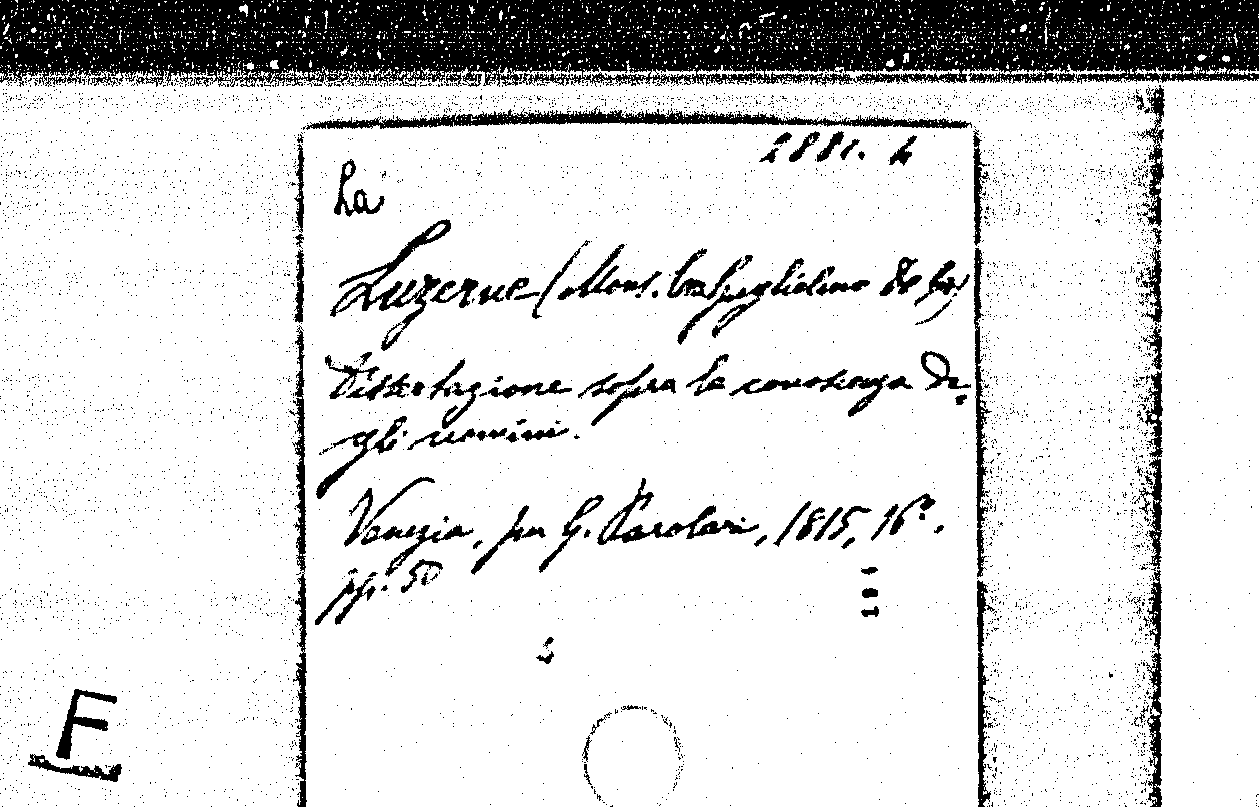 288c. 4
La
Luzerne (Mons. Guglielmo De la)
Dissertazione sopra la conoscenza de=
gli uomini.
Venezia, per G. Parolari, 1815, 16º.
pp. 50
F